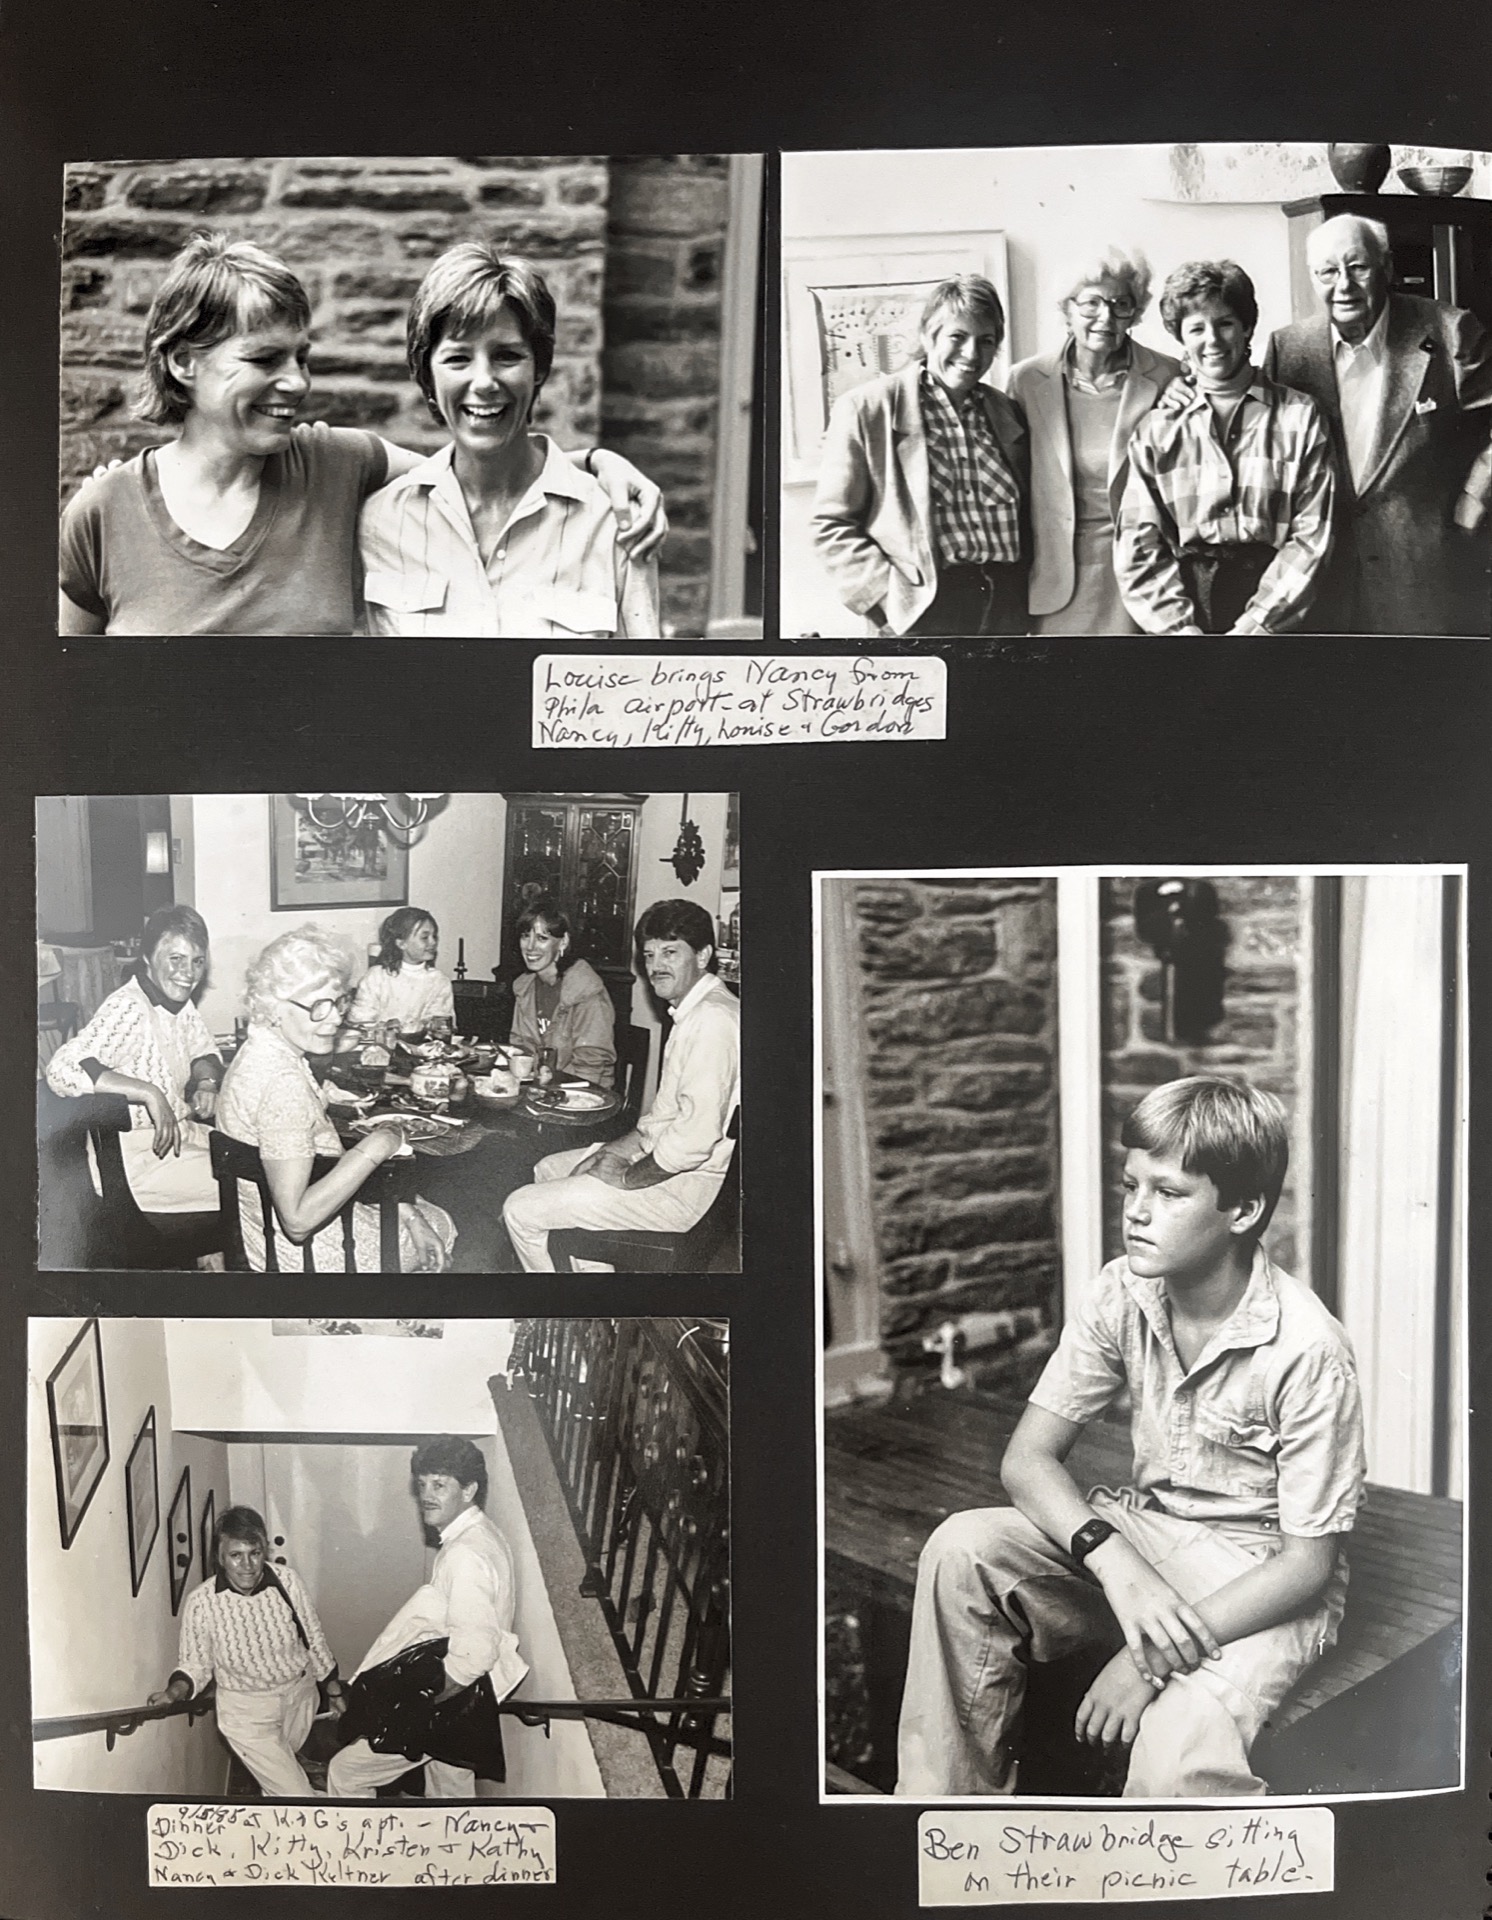 Louise brings Nancy from
Phila airport - at Strawbridges
Nancy, Kitty, Louise & Gordon
9/5/85
Dinner at K & G's apt. - Nancy &
Dick, Kitty, Kristen & Kathy
Nancy & Dick Keltner after dinner
Ben Strawbridge sitting
on their picnic table.